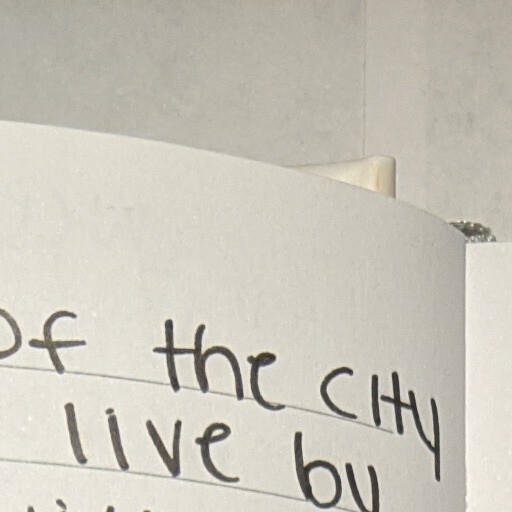 of the city
live by